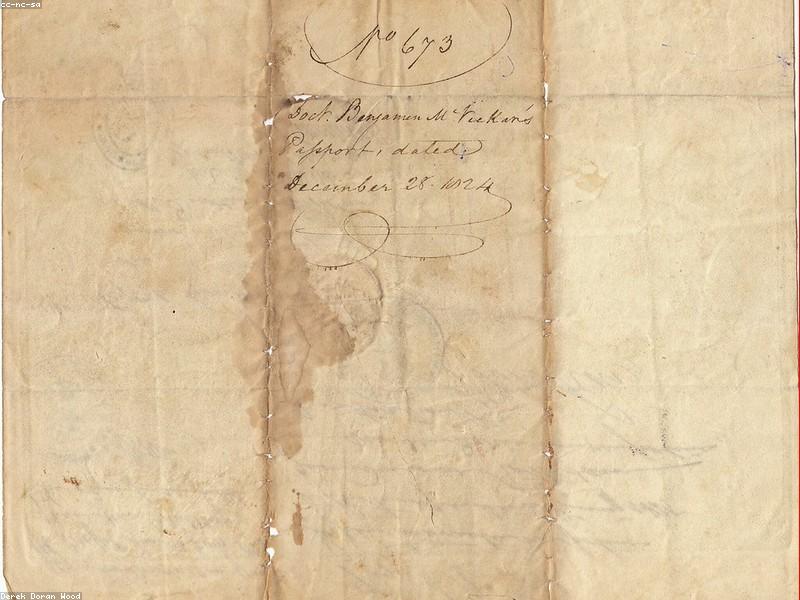 cc-nc-sa
No 673
Doct. Benjamin Mc Vickar's
Passport, dated
December 28. 1824
Derek Doran Wood